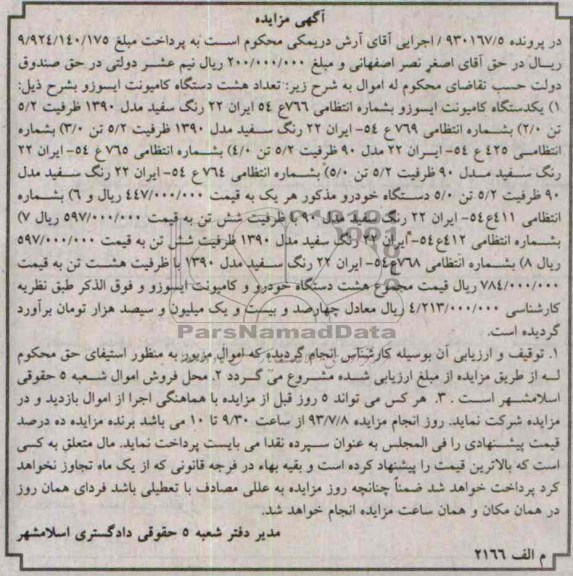 آگهی مزایده
در پرونده ۹۳۰۱۶۷/۵ / اجرایی آقای آرش دریمکی محکوم است به پرداخت مبلغ ۹/۹۲۴/۱۴۰/۱۷۵
ریال در حق آقای اصغر نصر اصفهانی و مبلغ ۲۰۰/۰۰۰/۰۰۰ ریال نیم عشر دولتی در حق صندوق
دولت حسب تقاضای محکوم له اموال به شرح زیر: تعداد هشت دستگاه کامیونت ایسوزو بشرح ذیل:
۱) یکدستگاه کامیونت ایسوزو بشماره انتظامی ۷۶۶ع ۵۴ ایران ۲۲ رنگ سفید مدل ۱۳۹۰ ظرفیت ۵/۲
تن ۲/۰) بشماره انتظامی ۷۶۹ ع ۵۴- ایران ۲۲ رنگ سفید مدل ۱۳۹۰ ظرفیت ۵/۲ تن ۳/۰) بشماره
انتظامی ۴۲۵ ع ۵۴- ایران ۲۲ مدل ۹۰ ظرفیت ۵/۲ تن ۴/۰) بشماره انتظامی ۷۶۵ ع ۵۴- ایران ۲۲
رنگ سفید مدل ۹۰ ظرفیت ۵/۲ تن ۵/۰) بشماره انتظامی ۷۶۴ ع ۵۴- ایران ۲۲ رنگ سفید مدل
۹۰ ظرفیت ۵/۲ تن ۵/۰ دستگاه خودرو مذکور هر یک به قیمت ۴۴۷/۰۰۰/۰۰۰ ریال و ۶) بشماره
انتظامی ۴۱۱ع۵۴- ایران ۲۲ رنگ سفید مدل ۹۰ با ظرفیت شش تن به قیمت ۵۹۷/۰۰۰/۰۰۰ ریال ۷)
بشماره انتظامی ۴۱۲ع۵۴- ایران ۲۲ رنگ سفید مدل ۱۳۹۰ ظرفیت شش تن به قیمت ۵۹۷/۰۰۰/۰۰۰
ریال ۸) بشماره انتظامی ۷۶۸ع۵۴- ایران ۲۲ رنگ سفید مدل ۱۳۹۰ با ظرفیت هشت تن به قیمت
۷۸۴/۰۰۰/۰۰۰ ریال قیمت مجموع هشت دستگاه خودرو و کامیونت ایسوزو و فوق الذکر طبق نظریه
کارشناسی ۴/۲۱۳/۰۰۰/۰۰۰ ریال معادل چهارصد و بیست و یک میلیون و سیصد هزار تومان برآورد
گردیده است.
ParsNamadData
۱. توقیف و ارزیابی آن بوسیله کارشناس انجام گردیده که اموال مزبور به منظور استیفای حق محکوم
له از طریق مزایده از مبلغ ارزیابی شده مشروع می گردد ۲. محل فروش اموال شعبه ۵ حقوقی
اسلامشهر است . ۳. هر کس می تواند ۵ روز قبل از مزایده با هماهنگی اجرا از اموال بازدید و در
مزایده شرکت نماید. روز انجام مزایده ۹۳/۷/۸ از ساعت ۹/۳۰ تا ۱۰ می باشد برنده مزایده ده درصد
قیمت پیشنهادی را فی المجلس به عنوان سپرده نقدا می بایست پرداخت نماید. مال متعلق به کسی
است که بالاترین قیمت را پیشنهاد کرده است و بقیه بهاء در فرجه قانونی که از یک ماه تجاوز نخواهد
کرد پرداخت خواهد شد ضمناً چنانچه روز مزایده به عللی مصادف با تعطیلی باشد فردای همان روز
در همان مکان و همان ساعت مزایده انجام خواهد شد.
مدیر دفتر شعبه ۵ حقوقی دادگستری اسلامشهر
م الف ۲۱۶۶